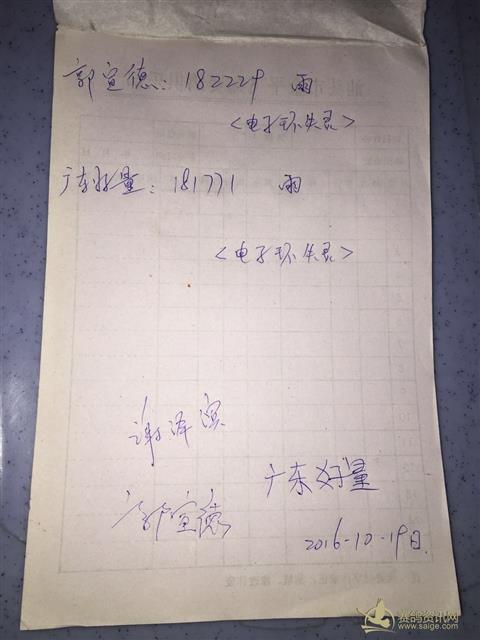 郭宣德：182229 雨
<电子环失灵>
广东好量：181771 雨
<电子环失灵>
谢泽滨
广东好量
郭宣德
2016-10-19日.
赛鸽资讯网
www.saige.com